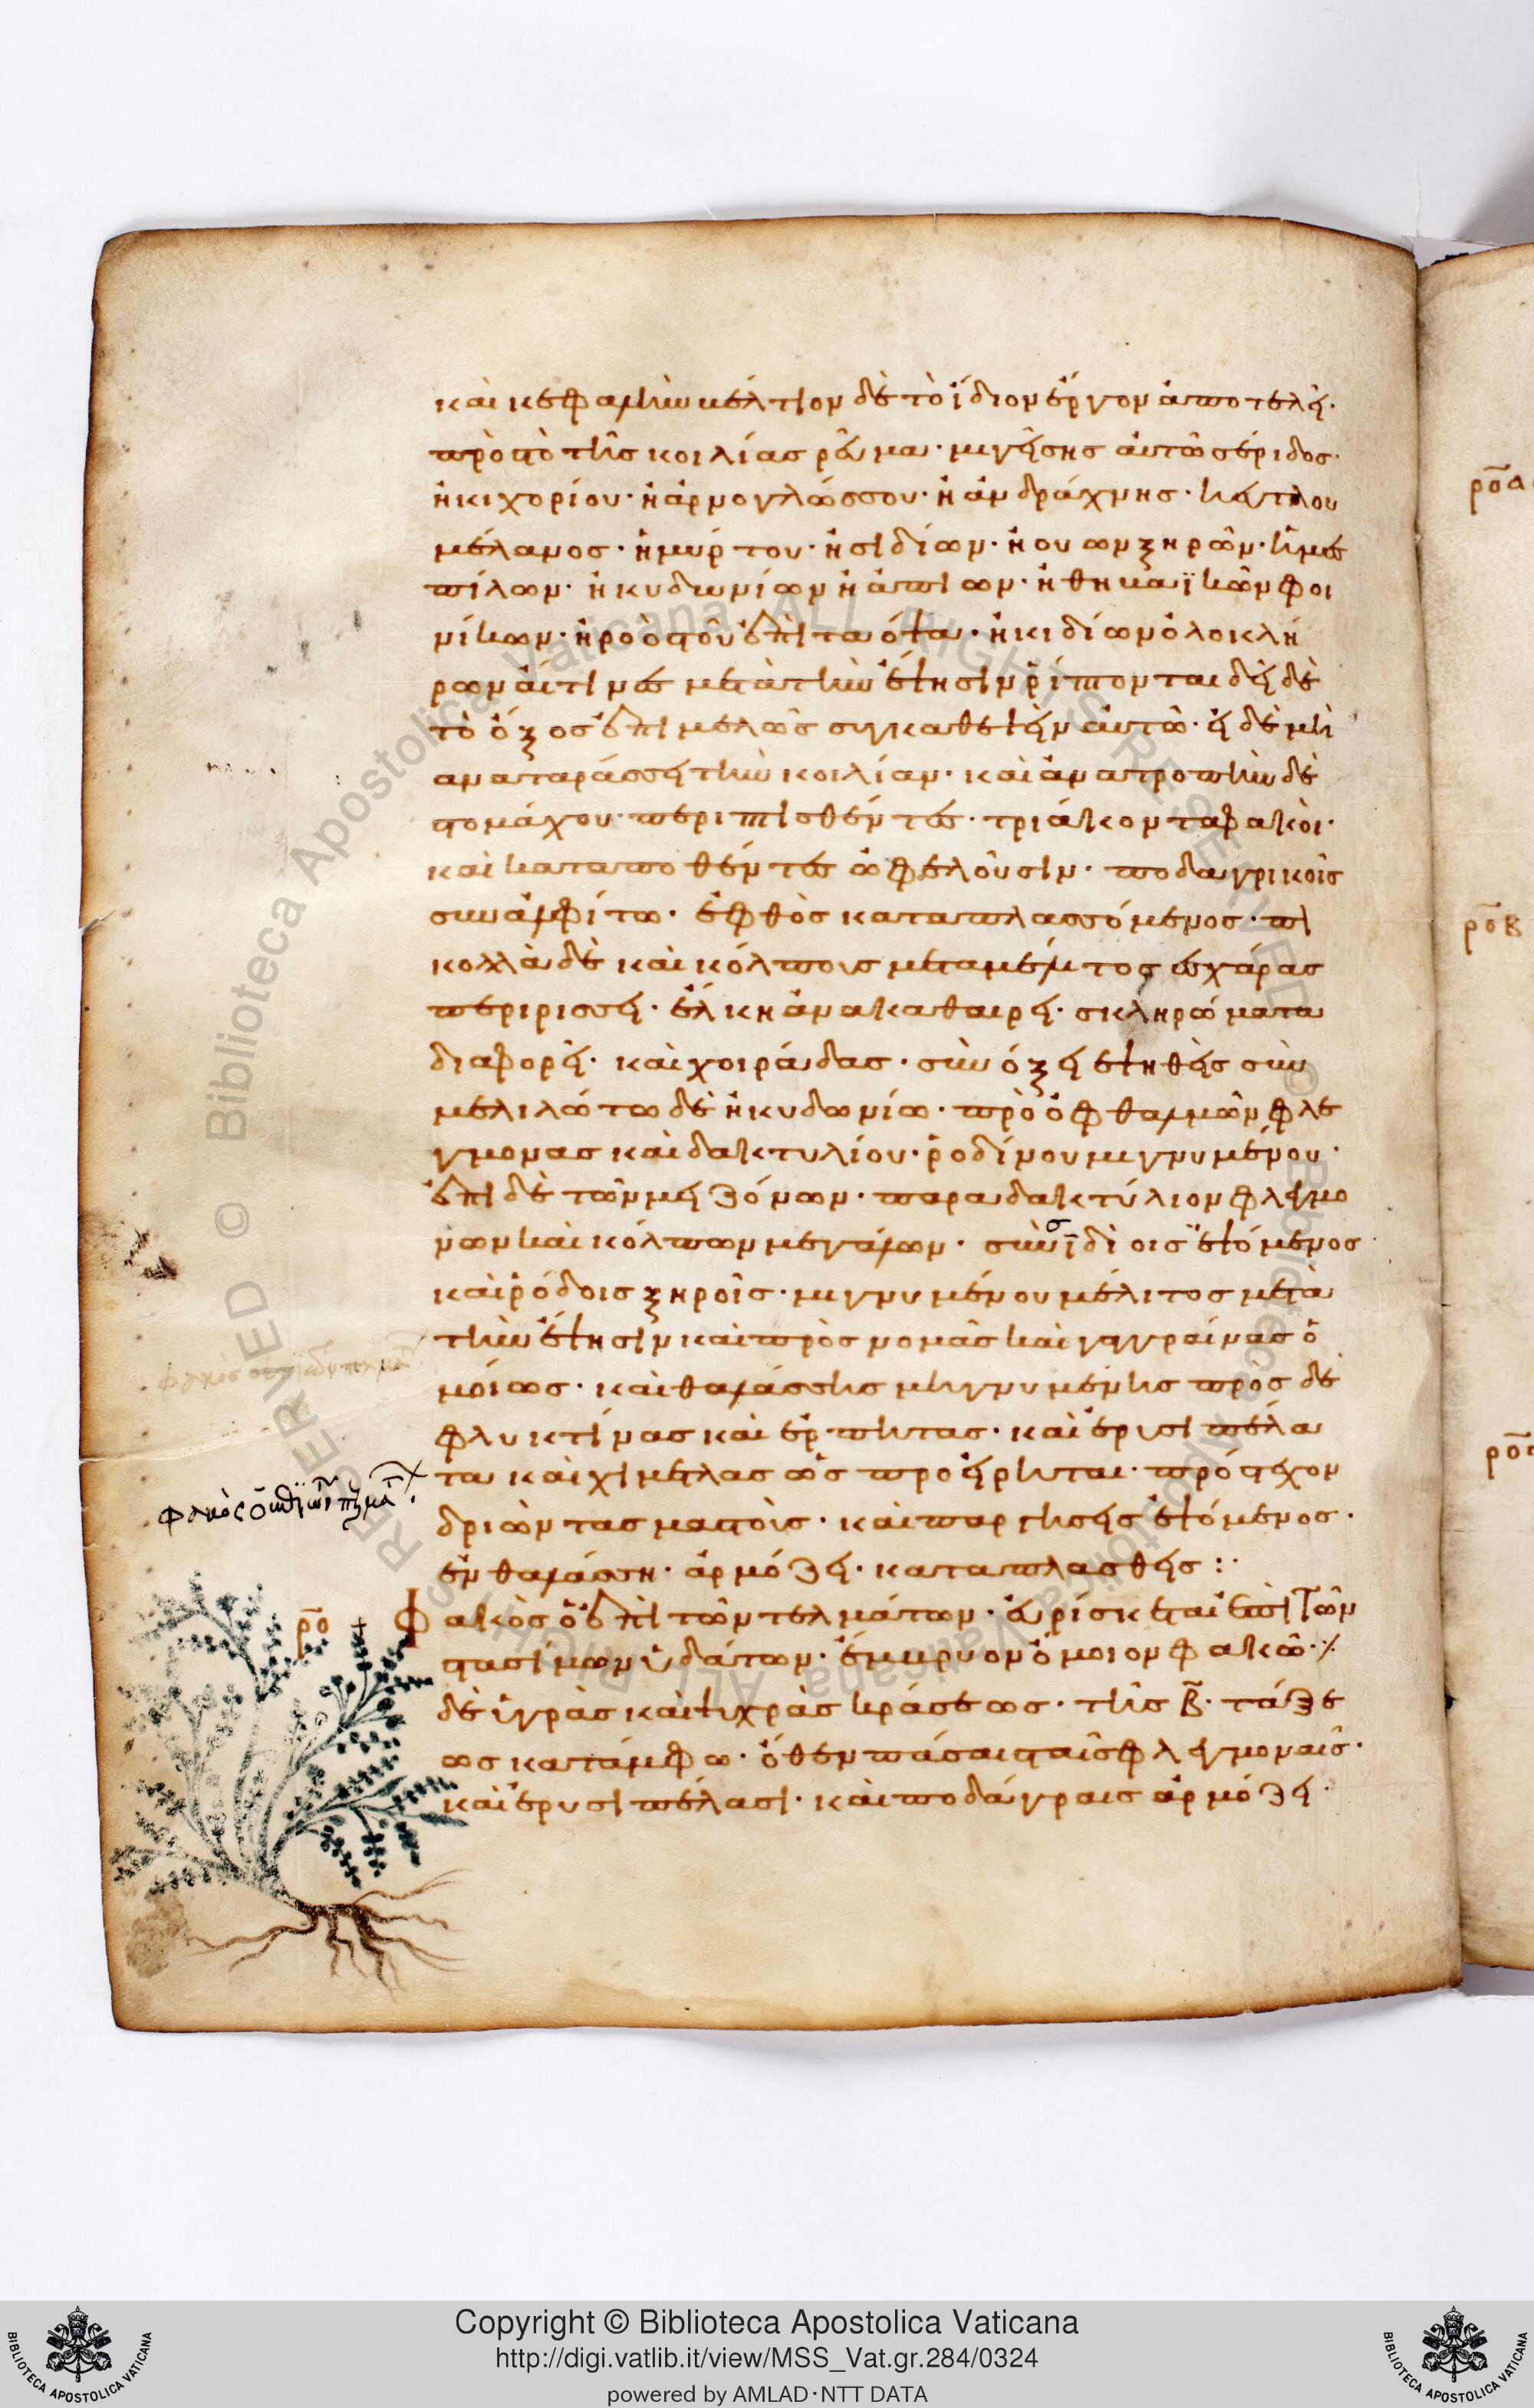 καὶ κεφαλὴν βέλτιον δὲ τὸ ἴδιον ἔργον ἀποτελεῖ·
πρὸ στὸ τῆς κοιλίας ῥεῦμα· μιγείσης αὐτῶ σέριδος·
ἢ κιχορίου· ἢ ἀρνογλώσσου· ἢ ἀνδράχνης· ἢ σεύτλου
μέλανος· ἢ μύρτου· ἢ σιδίων· ἢ ουων ξηρῶν· ἢ μεσ
πίλων· ἢ κυδωνίων ἢ ἀπίων· ἢ θηβαϊκῶν φοι
νίκων· ἢ ῥοὸς τοῦ ἐπὶ τὰ ὄψα· ἢ κιδίων ὁλοκλή
ρων αἵτινες μετὰ τὴν ἕψησιν ῥίπτονται δεῖ δὲ
τὸ ὄξος ἐπιμελῶς συγκαθεψεῖν αὐτῶ· εἰ δὲ μὴ
αναταράσσει τὴν κοιλίαν· καὶ ἀνατροπὴν δὲ
στομάχου· περιπτισθέντες· τριάκοντα φακοὶ·
καὶ καταποθέντες ὠφελοῦσιν· ποδαγρικοῖς
συν ἀλφίτω· ἑφθὸς καταπλασσόμενος· πι
κολλὰ δὲ καὶ κόλπους μεταμέλιτος ἐσχάρας
περιρισσει· ἕλκη ἀνακαθαιρει· σκληρώματα
διαφορεῖ· καὶ χοιράδας· σὺν ὄξει ἑψηθεὶς σὺν
μελιλώτω δὲ ἢ κυδωνίω· πρὸ ὀφθαλμῶν φλε
γμονας καὶ δακτυλίου· ῥοδίνου μιγνυμένου·
ἐπὶ δὲ τῶν μειζόνων· παρα δακτύλιον φλεγμο
νων καὶ κόλπων μεγάλων· σὺν σιδίοις ἑψόμενος
καὶ ῥόδοις ξηροῖς· μιγνυμένου μέλιτος μετὰ
τὴν ἕψησιν καὶ πρὸς νομὰς καὶ γαγγραίνας ὁ
μοίως· καὶ θαλάσσης μηγνυμένης πρὸς δὲ
φλυκτίνας καὶ ἕρπητας· καὶ ἐρυσιπέλα
τα καὶ χιμετλας ὡς προείρηται· πρό στε χον
δριῶντας μαστοὺς· καὶ σπαργήσεις ἑψόμενος·
ἐν θαλάσση· ἁρμόζει· καταπλασθεὶς :·
ρο̅
Φακὸς ὁ ἐπὶ τῶν τελμάτων· εὑρίσκεται ἐπὶ τῶν
στασίμων ὑδάτων· ἔμβρυον ὅμοιον φακῶ·
δὲ ὑγρὰς καὶ ψυχρὰς κράσεως· τῆς β̅· τάξε
ως κατάμφω· ὅθεν πάσαις ταῖς φλεγμοναῖς·
καὶ ἐρυσιπέλασι· καὶ ποδάγραις ἁρμόζει·
ρο̅α
ρο̅β
Copyright © Biblioteca Apostolica Vaticana
http://digi.vatlib.it/view/MSS_Vat.gr.284/0324
powered by AMLAD·NTT DATA
BIBLIOTECA APOSTOLICA VATICANA
BIBLIOTECA APOSTOLICA VATICANA